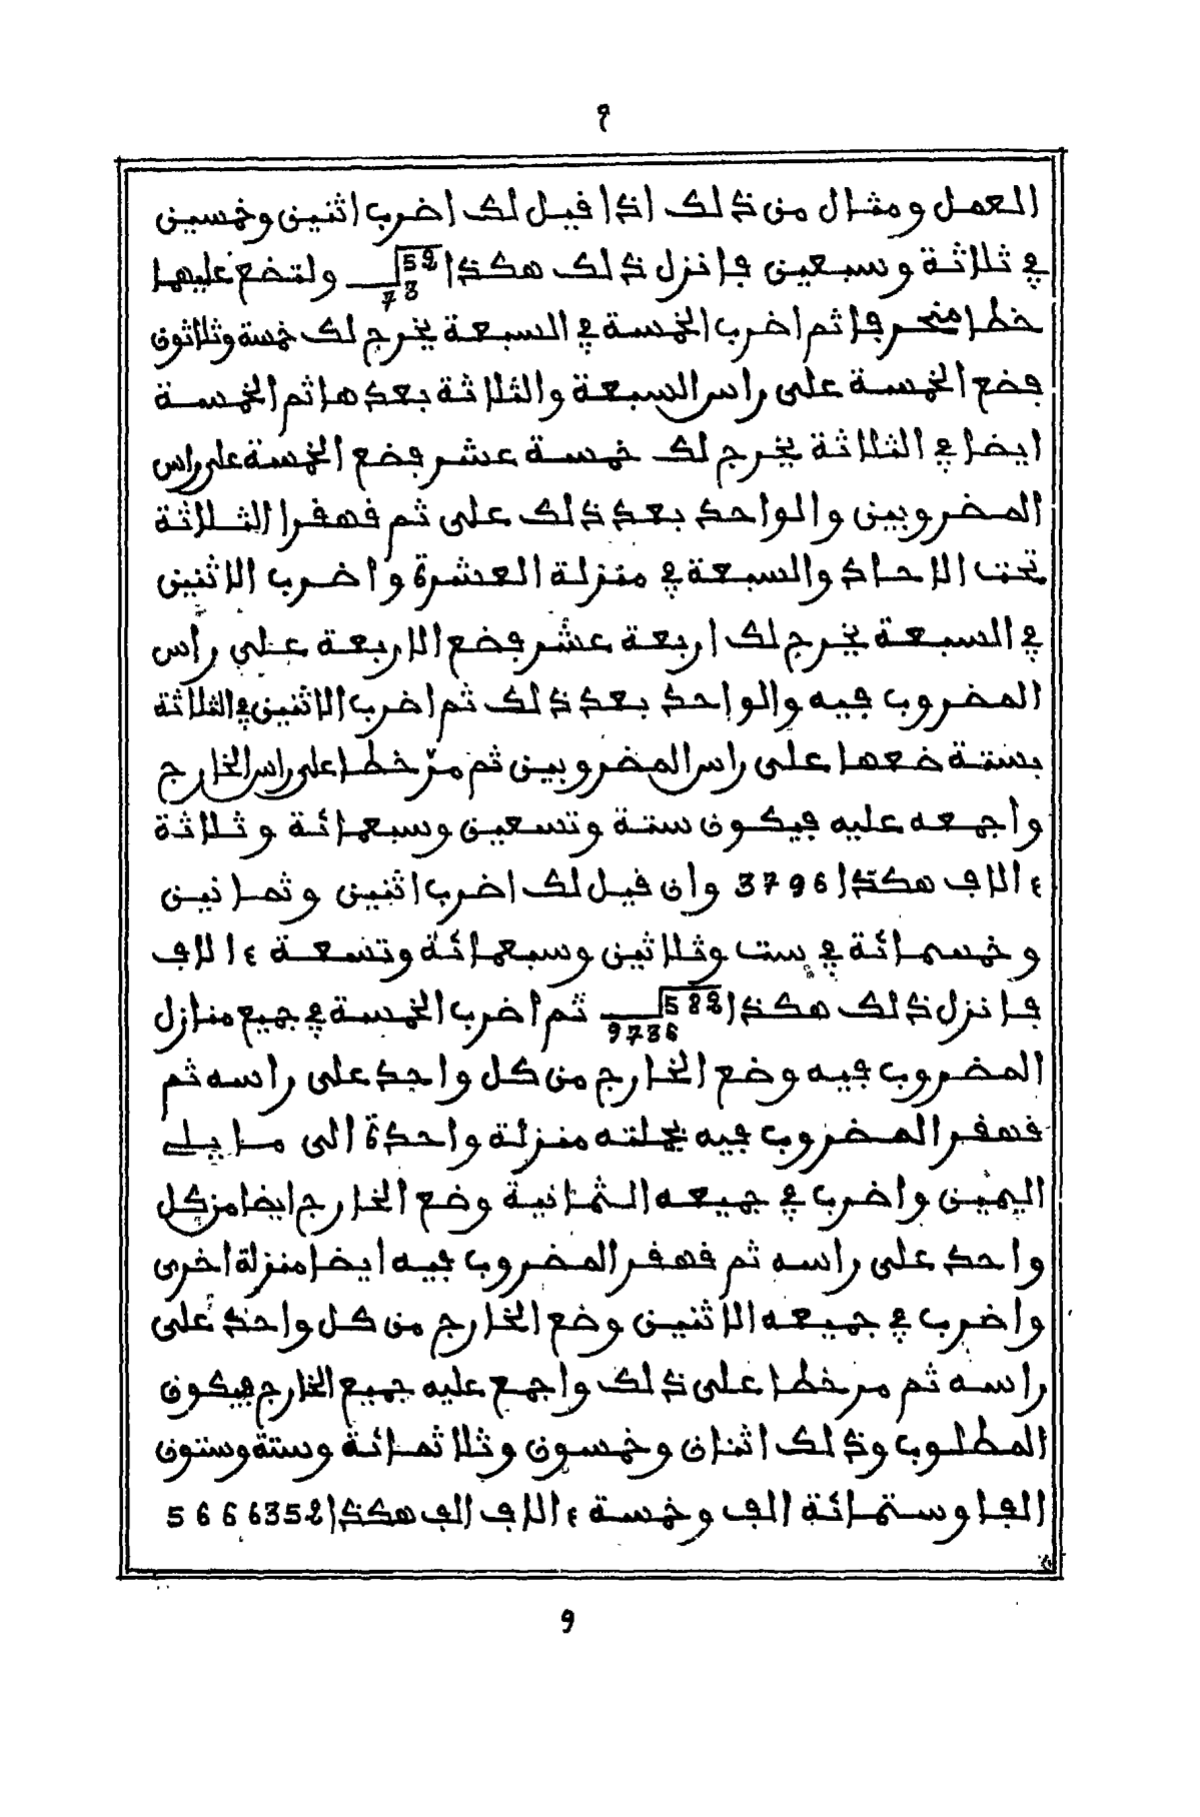 ٩
العمل ومثال من ذلك اذا قيل لك اضرب اثنين وخمسين
في ثلاثة وسبعين فانزل ذلك هكذا 52 73 ولتضع عليها
خطا منحرفا ثم اضرب الخمسة في السبعة يخرج لك خمسة وثلاثون
فضع الخمسة على راس السبعة والثلاثة بعدها ثم الخمسة
ايضا في الثلاثة يخرج لك خمسة عشر فضع الخمسة على راس
المضروبين والواحد بعد ذلك على ثم فهقر الثلاثة
تحت الاحاد والسبعة في منزلة العشرة واضرب الاثنين
في السبعة يخرج لك اربعة عشر فضع الاربعة على رأس
المضروب فيه والواحد بعد ذلك ثم اضرب الاثنين في الثلاثة
بستة ضعها على راس المضروبين ثم مرّ خطا على راس الخارج
واجمعه عليه فيكون ستة وتسعين وسبعمائة وثلاثة
ءالاف هكذا 3796 وان قيل لك اضرب اثنين وثمانين
وخمسمائة في ست وثلاثين وسبعمائة وتسعة ءالاف
فانزل ذلك هكذا 582 9736 ثم اضرب الخمسة في جميع منازل
المضروب فيه وضع الخارج من كل واحد على راسه ثم
فهقر المضروب فيه بجملته منزلة واحدة الى ما يلي
اليمين واضرب في جميعه الثمانية وضع الخارج ايضا من كل
واحد على راسه ثم فهقر المضروب فيه ايضا منزلة اخرى
واضرب في جميعه الاثنين وضع الخارج من كل واحد على
راسه ثم مر خطا على ذلك واجمع عليه جميع الخارج فيكون
المطلوب وذلك اثنان وخمسون وثلاثمائة وستة وستون
الفا وستمائة الف وخمسة ءالاف الف هكذا 5666352
9